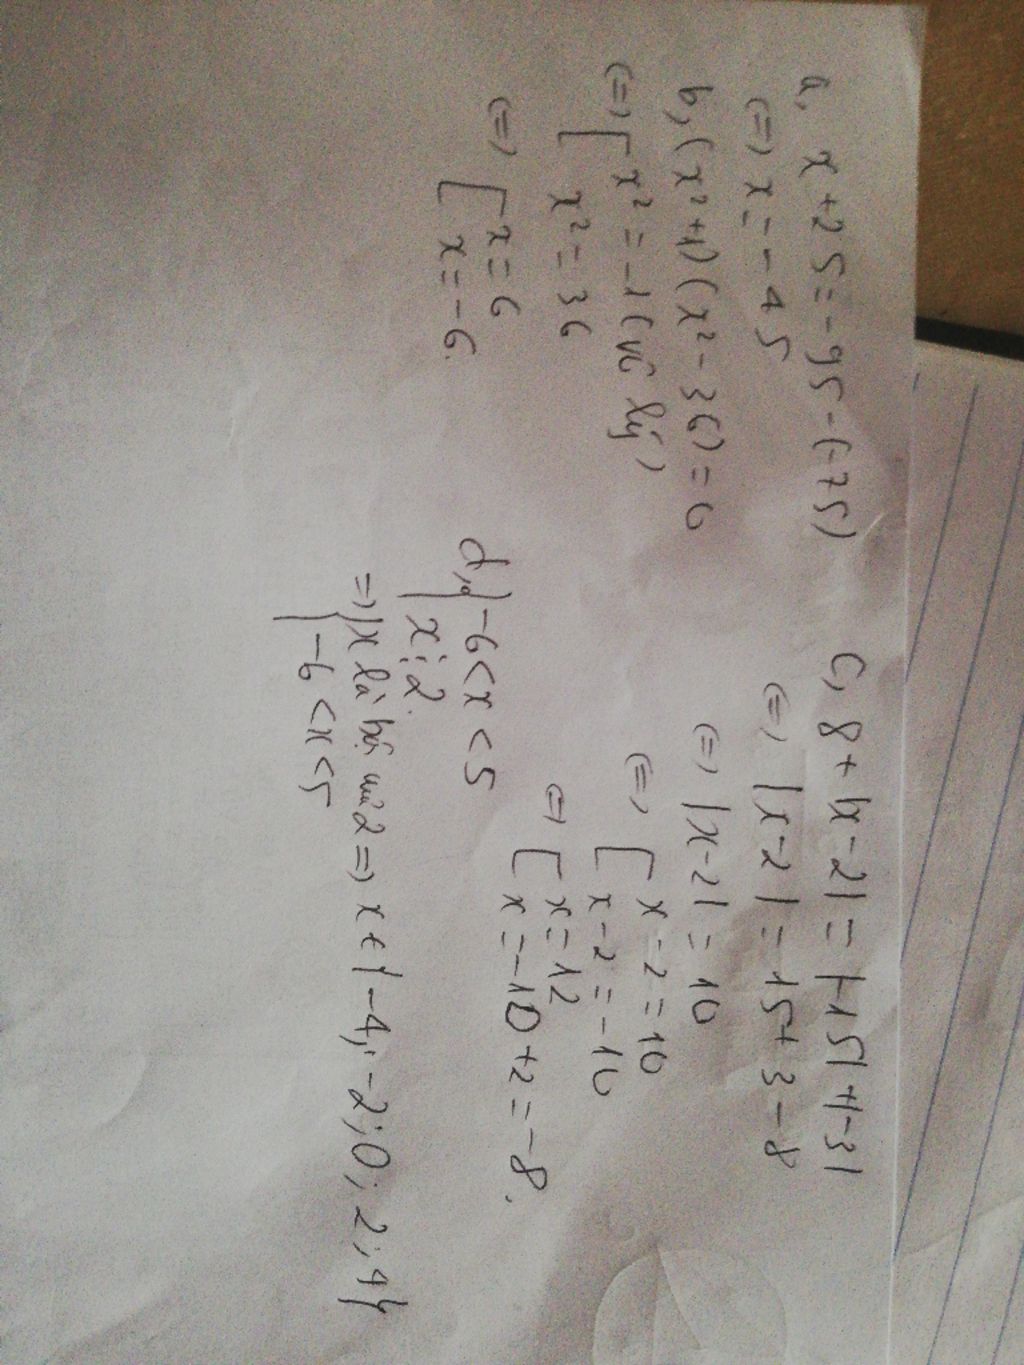 a, x + 25 = -95 - (-75)
(=) x = -45
b, (x² + 1)(x² - 36) = 0
(=) [ x² = -1 (vô lý)
x² = 36
(=) [ x = 6
x = -6.
c, 8 + |x - 2| = |-15| + |-3|
(=) |x - 2| = 15 + 3 - 8
(=) |x - 2| = 10
(=) [ x - 2 = 10
x - 2 = -10
(=) [ x = 12
x = -10 + 2 = -8.
d, { -6 < x < 5
x ⋮ 2.
=) { x là bội của 2 =) x ∈ {-4; -2; 0; 2; 4}
-6 < x < 5